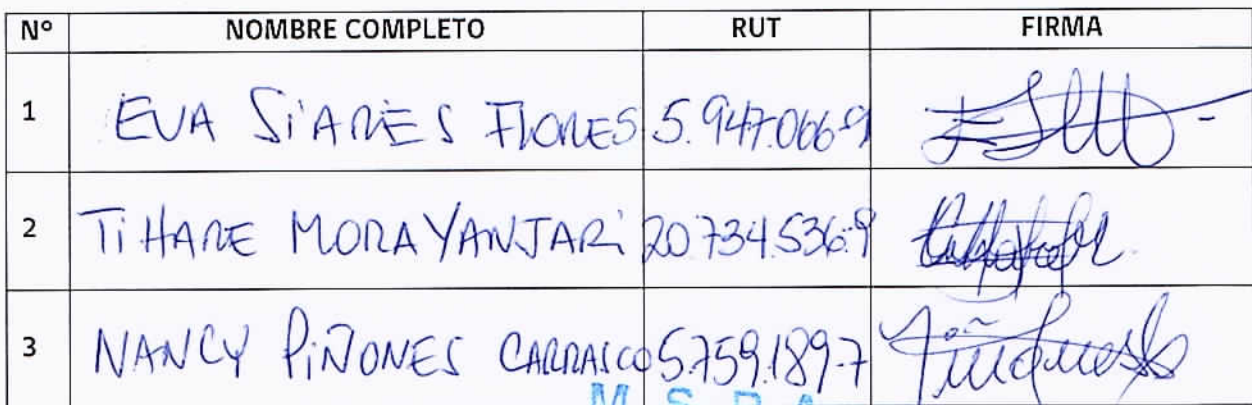 Nº NOMBRE COMPLETO RUT FIRMA
1 EVA SIARES FLORES 5.947.066-9
2 TIHARE MORA YANJARI 20.734.536-9
3 NANCY PIÑONES CARRASCO 5.759.189-7
M. S. P. A.